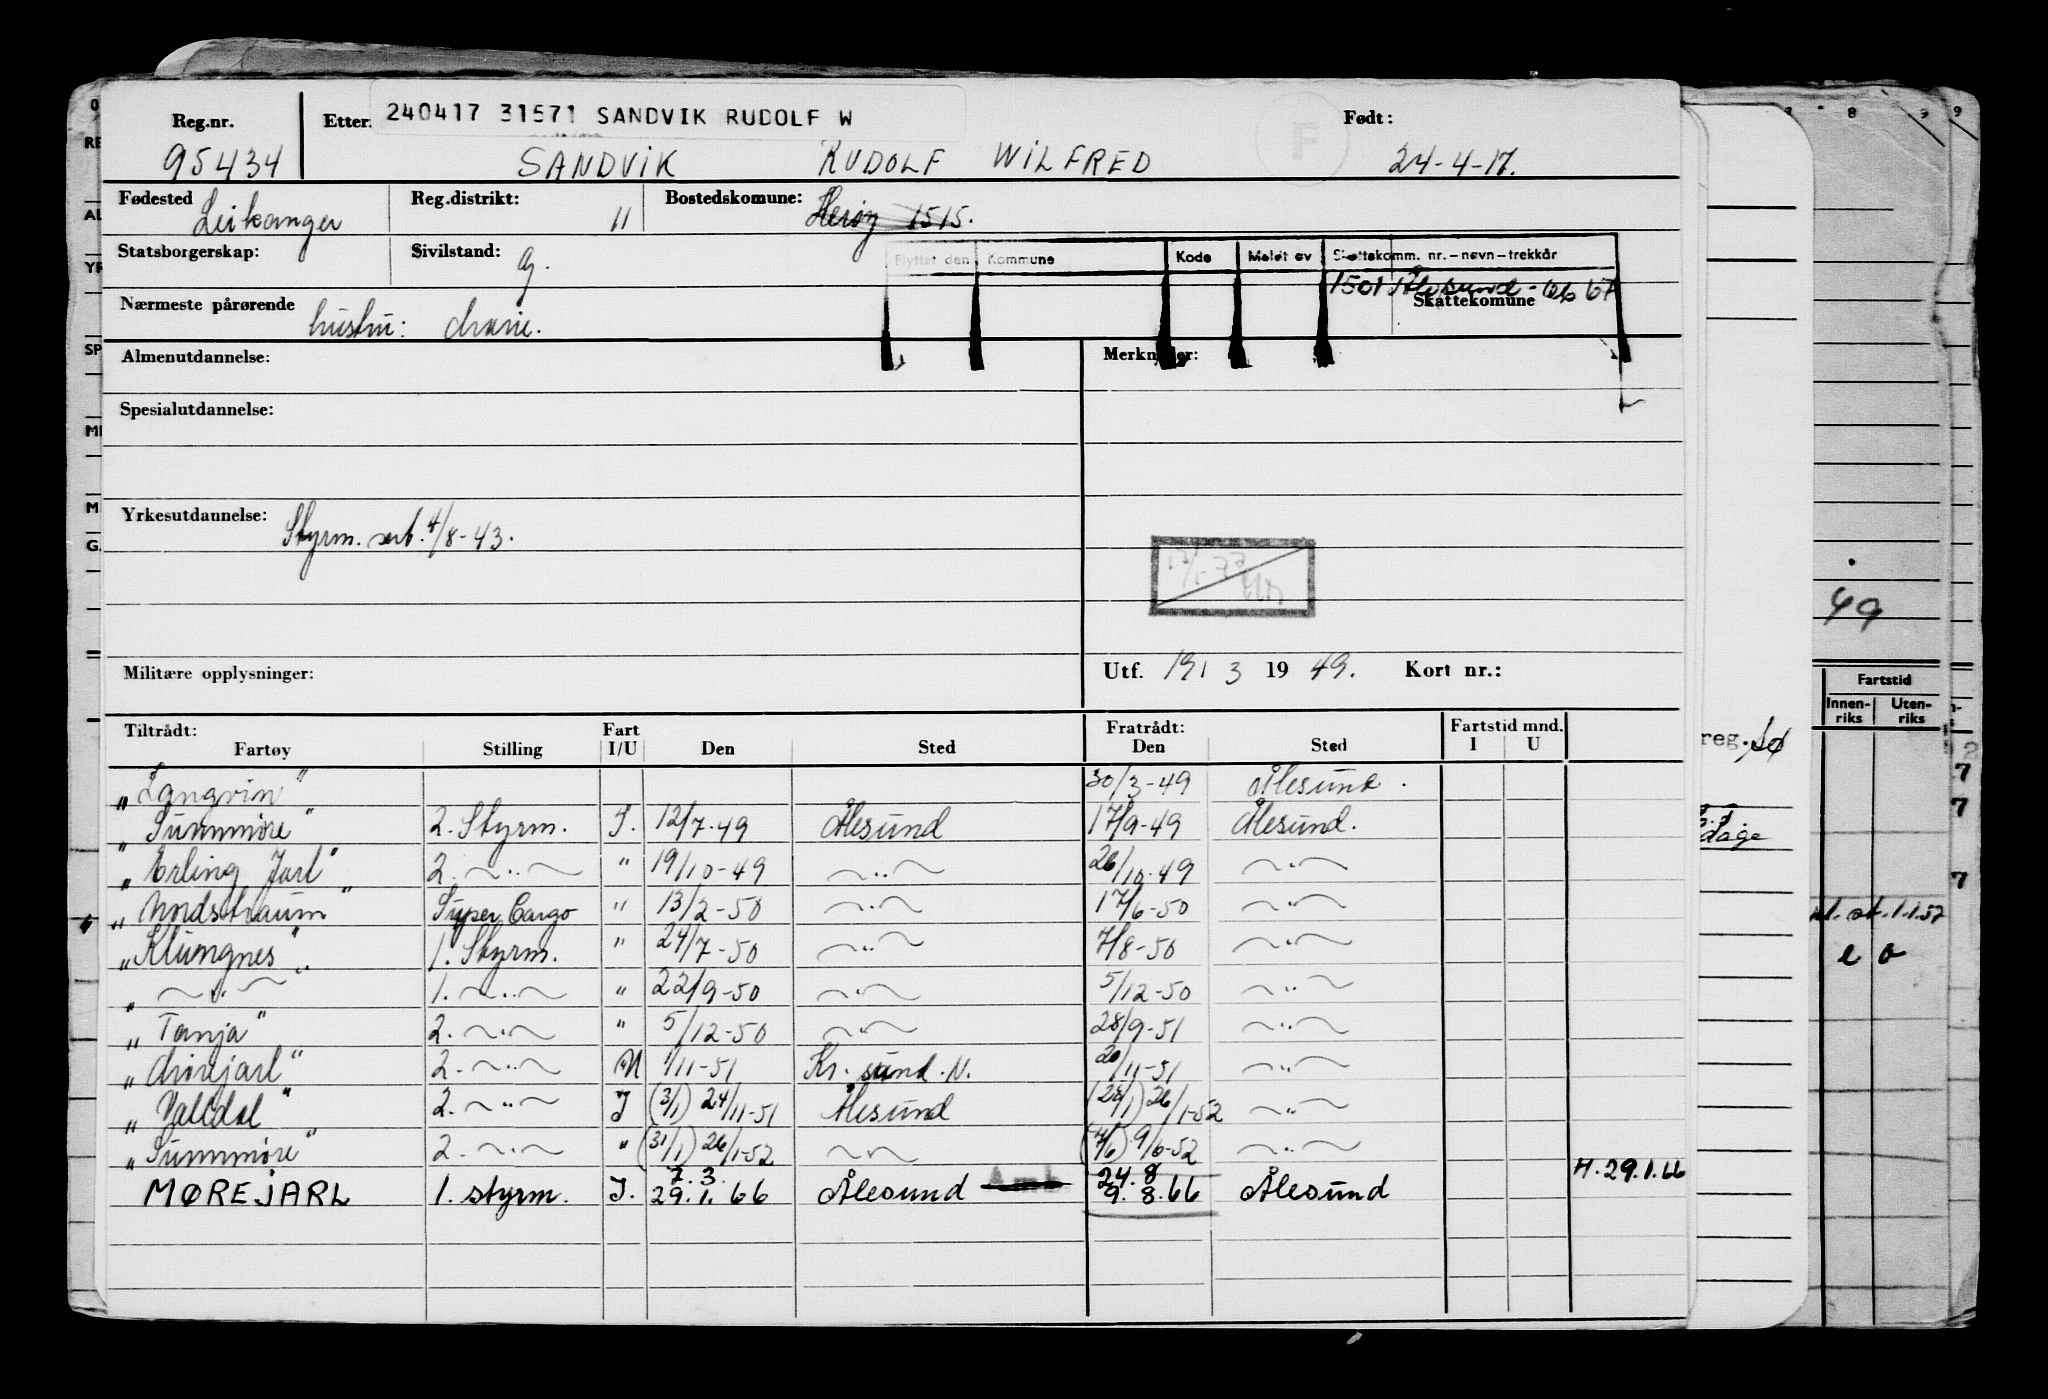 240417 31571 SANDVIK RUDOLF W
Reg.nr. Etter. Født:
95434 SANDVIK RUDOLF WILFRED 24-4-17.
Fødested Leikanger Reg.distrikt: 11 Bostedskomune: Herøy 1515.
Statsborgerskap: Sivilstand: g.
Flyttet den Kommune Kode Meldt av Skattekomm. nr.-navn-trekkår
1501 Ålesund - 66 67
Nærmeste pårørende hustru: Marie. Skattekomune
Almenutdannelse: Merknader:
Spesialutdannelse:
Yrkesutdannelse: Styrm. sert. 4/8-43.
Militære opplysninger: Utf. 19/ 3 19 49. Kort nr.:
Tiltrådt: Fart Fratrådt: Fartstid mnd.
Fartøy Stilling I/U Den Sted Den Sted I U
"Langvin" 30/3-49 Ålesund.
"Sunnmøre" 2. Styrm. I. 12/7-49 Ålesund 17/9-49 Ålesund.
"Erling Jarl" 2. — " — " 19/10-49 — " — 26/10-49 — " —
"Nordstraum" Super Cargo " 13/2-50 — " — 17/6-50 — " —
"Klungnes" 1. Styrm. " 24/7-50 — " — 7/8-50 — " —
" — " — 1. — " — " 22/9-50 — " — 5/12-50 — " —
"Tanja" 2. — " — " 5/12-50 — " — 28/9-51 — " —
"Mørejarl" 2. — " — U 1/11-51 Kr. sund. N. 20/11-51 — " —
"Valldal" 2. — " — I (3/1) 24/11-51 Ålesund (28/1) 26/1-52 — " —
"Sunnmøre" 2. — " — " (31/1) 26/1-52 — " — (7/6) 9/6-52 — " —
7. 3. 24. 8
MØREJARL 1. styrm. I. 29.1.66 Ålesund 9.8.66 Ålesund H. 29.1.66
49
Fartstid
Innen-riks Uten-riks
reg.
dage
1.1.57